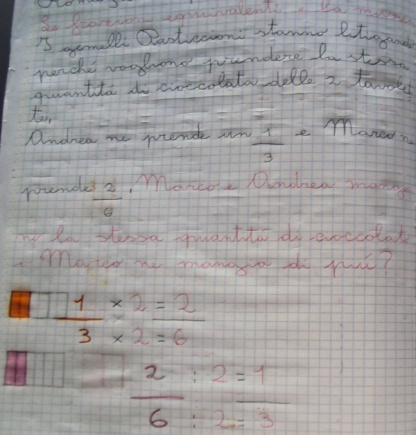 Le frazioni equivalenti e la
I gemelli Pasticcioni stanno litigando
perché vogliono prendere la stessa
quantità di cioccolata delle 2 tavolet
te,
Andrea ne prende un 1/3 e Marco n
prende 2/6, Marco e Andrea mangia
no la stessa quantità di cioccolat
o Marco ne mangia di più?
1/3 × 2 = 2
× 2 = 6
2/6 : 2 = 1
: 2 = 3